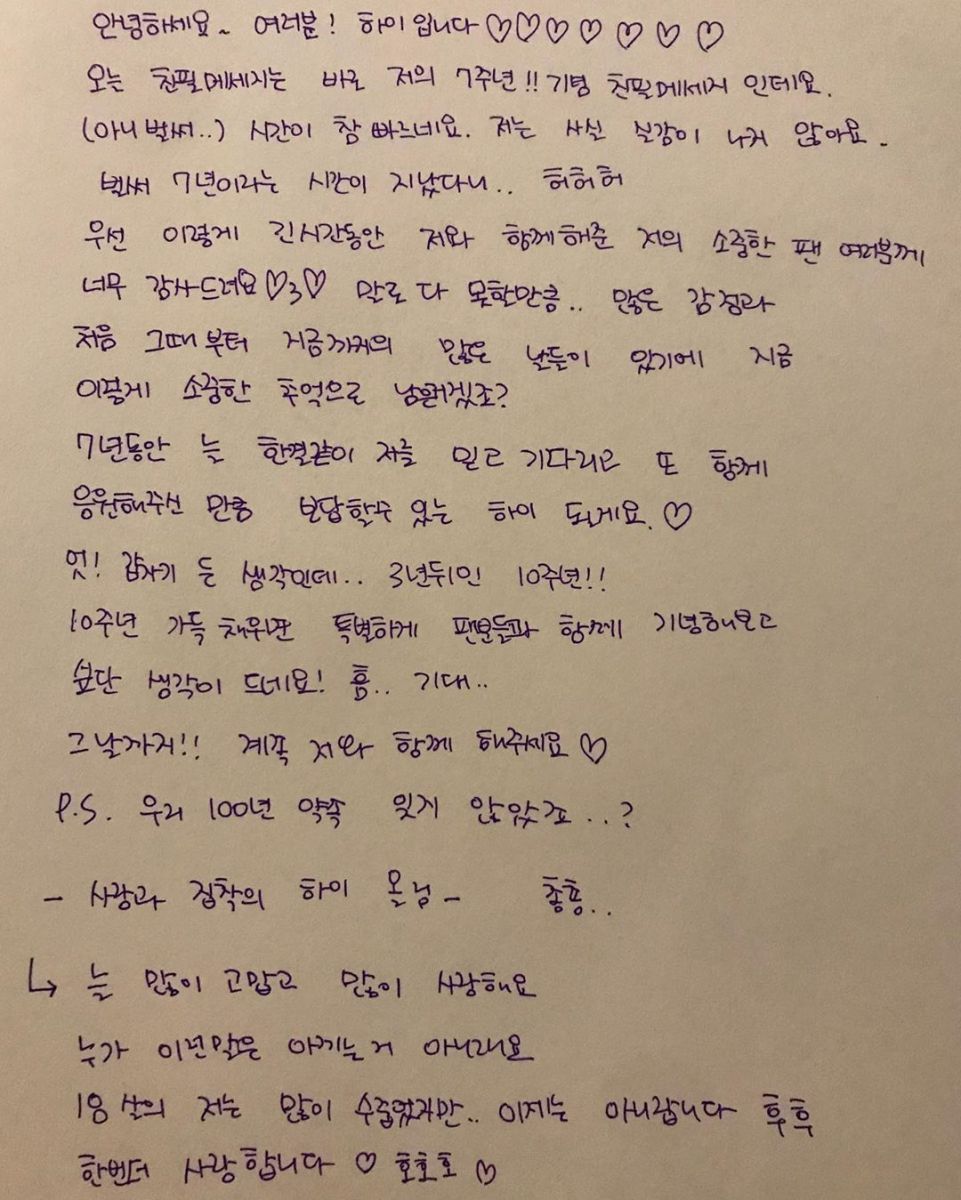 안녕하세요~ 여러분! 하이입니다♡♡♡♡♡♡♡
오늘 친필메세지는 바로 저의 7주년!! 기념 친필메세지 인데요.
(아니벌써..) 시간이 참 빠르네요. 저는 사실 실감이 나지 않아요.
벌써 7년이라는 시간이 지났다니.. 허허허
우선 이렇게 긴시간동안 저와 함께해준 저의 소중한 팬 여러분께
너무 감사드려요♡3♡ 말로 다 못할만큼.. 많은 감정과
처음 그때부터 지금까지의 많은 날들이 있기에 지금
이렇게 소중한 추억으로 남을거겠죠?
7년동안 늘 한결같이 저를 믿고 기다리고 또 함께
응원해주신 만큼 보답할수 있는 하이 되게요.♡
엇! 갑자기 든 생각인데.. 3년뒤인 10주년!!
10주년 가득 채워판 특별하게 팬분들과 함께 기념해보고
싶단 생각이 드네요! 흠.. 기대..
그날까지!! 계쪽 저와 함께 해주세요♡
P.S. 우리 100년 약쏙 잊지 않았죠..?
- 사랑과 집착의 하이 올님- 총총..
↳ 늘 많이 고맙고 많이 사랑해요
누가 이런말은 아끼는거 아니래요
18살의 저는 많이 수줍었지만.. 이제는 아니랍니다 후후
한번더 사랑합니다 ♡ 호호호 ♡